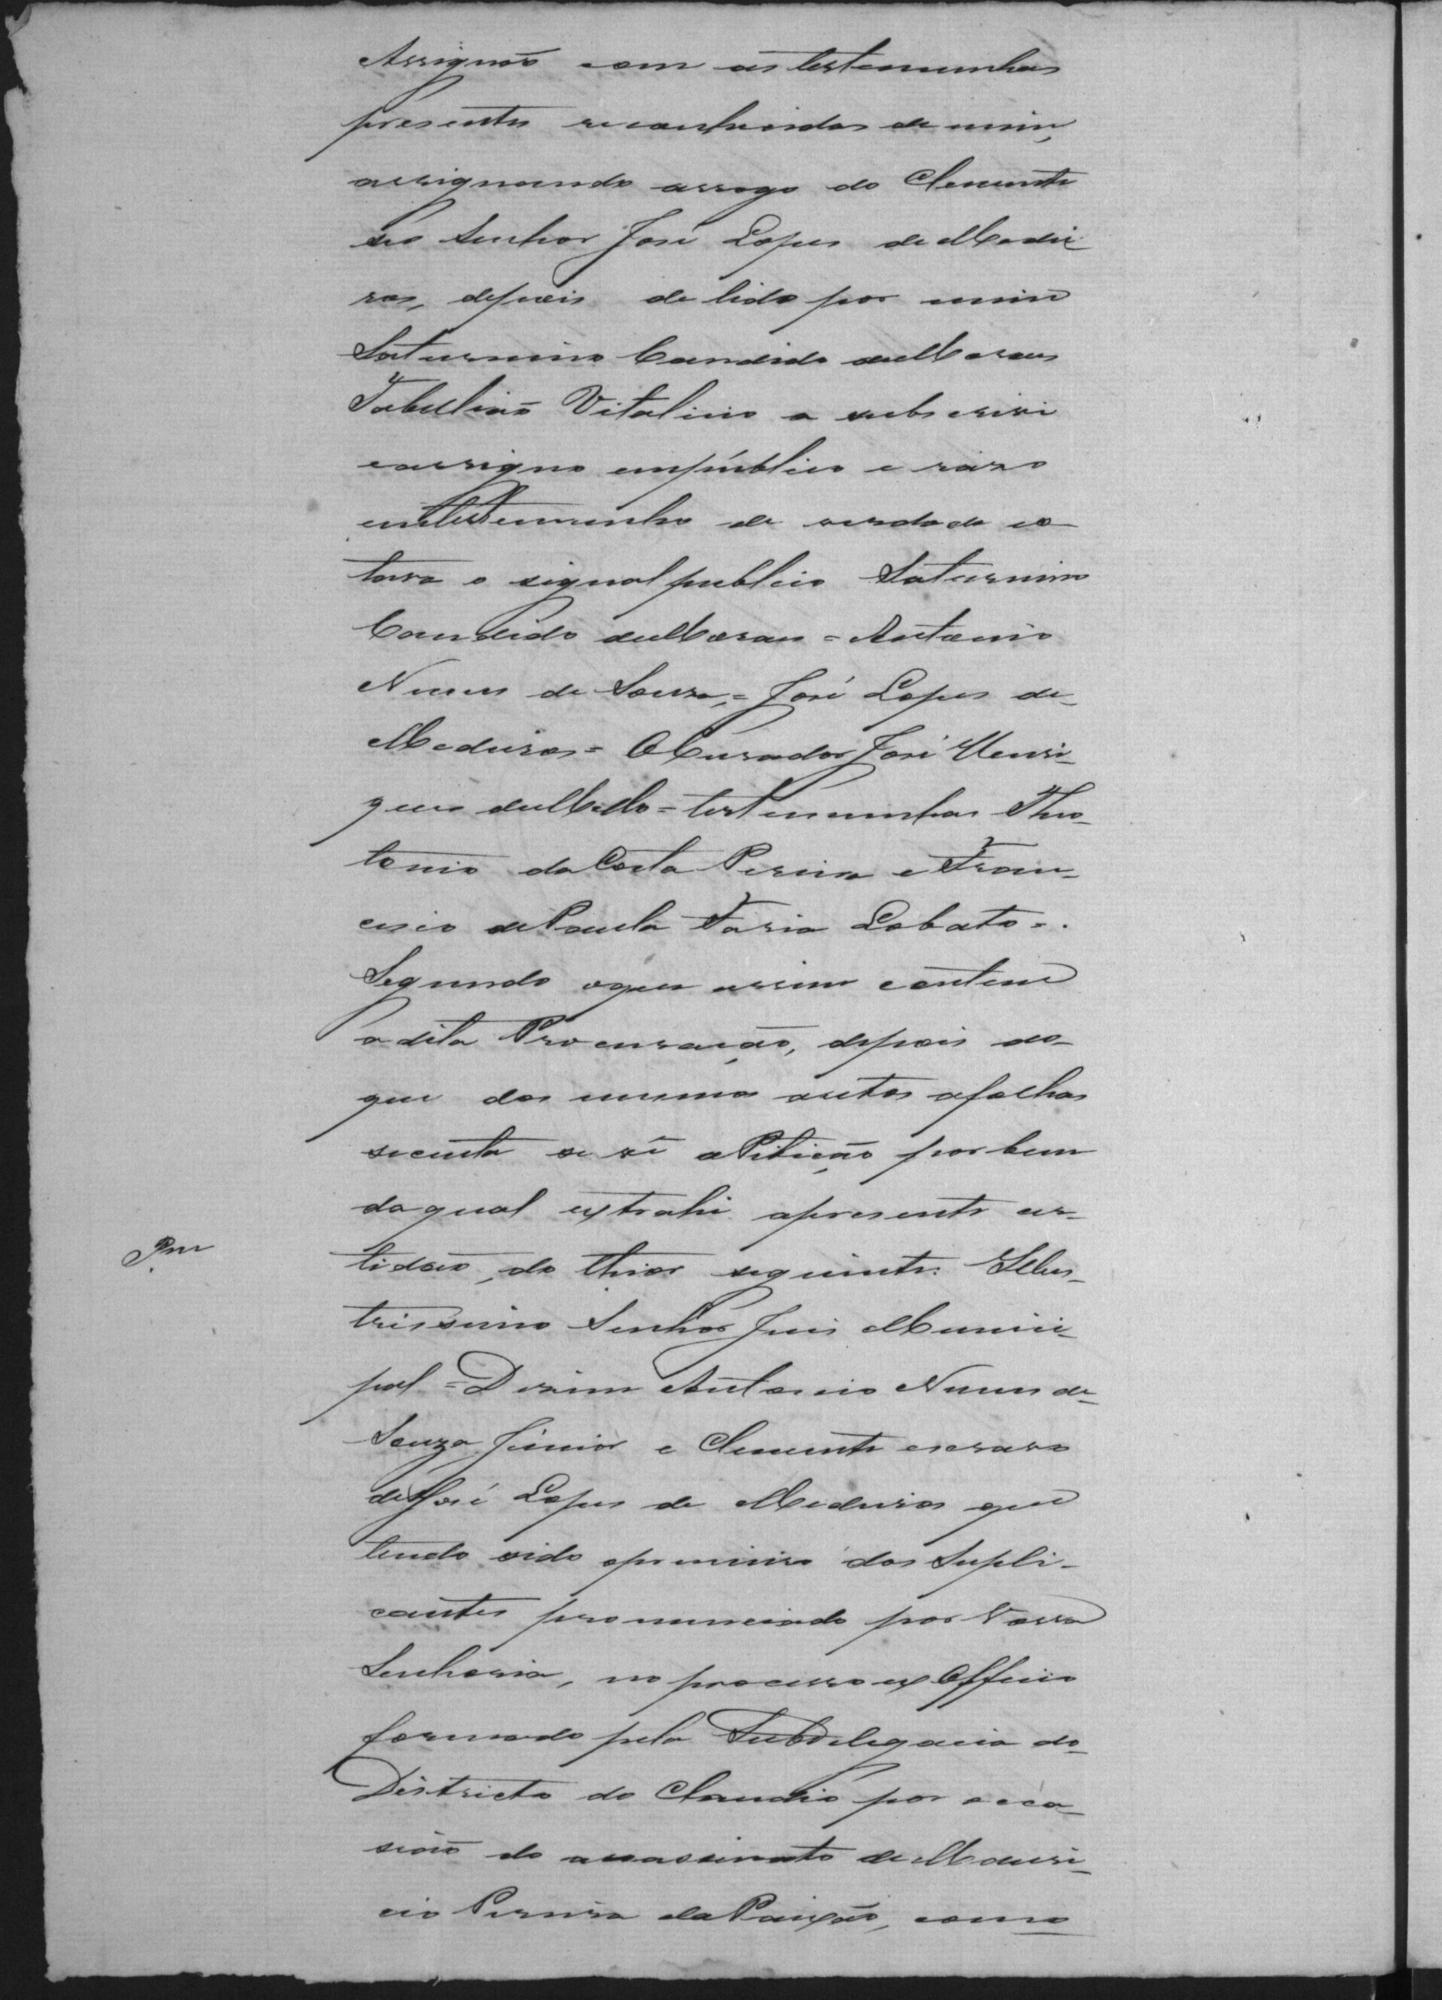 Assignão com as testemunhas
presentes reconhecidas de mim,
assignando arrogo do Clemente
seo Senhor José Lopes de Medei
ros, depois de lido por mim
Saturnino Candido de Moraes
Tabelião Vitalicio a subscrivi
eassigno empúblico e raso
emtestemunho de verdade es-
tava o signal publico Saturnino
Candido de Moraes = Antonio
Nunes de Souza, = José Lopes de
Medeiros = O Curador José Henri-
ques de Mello = testemunhas Theo-
tonio da Costa Pereira e Fran-
cisco de Paula Faria Lobato =.
Segundo oque assim contem
a dita Procuração, depois do-
que dos mesmos autos afolhas
secenta se vê a Petição por bem
da qual extrahi apresente cer-
Pm
tidão, do theor seguinte: Illus-
trissimo Senhor Juis Munici-
pal = Dizem Antonio Nunes de
Souza Júnior e Clemente escravo
de José Lopes de Medeiros que
tendo sido oprimeiro dos Supli-
cantes pronunciado por Vossa
Senhoria, no processo ex Officio
formado pela Subdelegacia do
Districto do Claudio por occa-
sião do assassinato de Mauri-
cio Pereira da Paixão, como